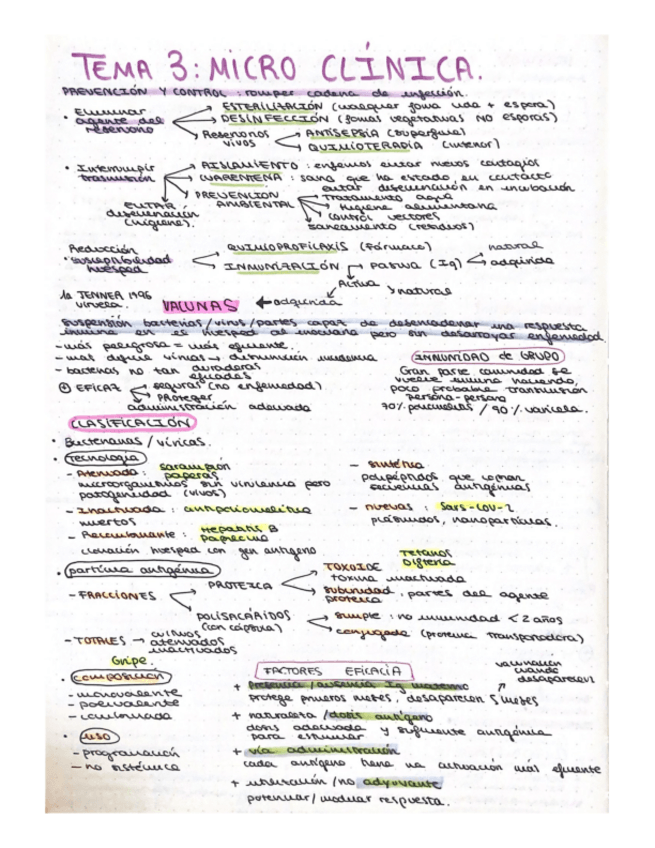 TEMA 3: MICRO CLÍNICA.
PREVENCIÓN Y CONTROL: romper cadena de infección.
• Eliminar agente del reservorio
ESTERILIZACIÓN (cualquier forma vida + espora)
DESINFECCIÓN (formas vegetativas NO esporas)
Reservorios vivos
ANTISEPSIA (superficial)
QUIMIOTERAPIA (interior)
• Interrumpir trasmisión
AISLAMIENTO: enfermos evitar nuevos contagios
CUARENTENA: sano que ha estado en contacto
evitar diseminación en incubación
PREVENCION AMBIENTAL
Tratamiento agua
Higiene alimentaria
Control vectores
Saneamiento (residuos)
EVITAR diseminación (higiene).
Reducción
• susceptibilidad huesped
QUIMIOPROFILAXIS (Fármaco)
INMUNIZACIÓN
Pasiva (Ig)
natural
adquirida
Activa
natural
adquirida
1a JENNER 1796 viruela.
VACUNAS
suspensión bacterias/virus/partes capaz de desencadenar una respuesta
inmune en el huesped al inocularla pero sin desarrollar enfermedad.
- más peligrosa = más eficiente.
- mas difíciles víricas → disminución
- bacterias no tan duraderas eficaces
EFICAZ
seguras (no enfermedad)
PROTEGER
administración adecuada
INMUNIDAD de GRUPO
Gran parte comunidad se
vuelve inmune haciendo
poco probable transmisión
persona-persona
70% / 90% varicela.
CLASIFICACIÓN
• Bacterianas / víricas.
• Tecnología
- Atenuada: sarampión paperas
microorganismos sin virulencia pero
patogeneidad (vivos)
- Inactivada: antipoliomelitica
muertos
- Recombinante: Hepatitis B
clonación huesped con gen antígeno
- sintética
polipéptidos que copian
secuencias antigénicas
- nuevas: Sars-COV-2
plásmidos, nanopartículas.
• partícula antigénica
- FRACCIONES
PROTEICA
TOXOIDE
Tetanos
Difteria
toxina inactivada
subunidad proteica: partes del agente
POLISACÁRIDOS
(con cápsula)
simple: no inmunidad < 2 años
conjugada (proteina transportadora)
- TOTALES → atenuados
inactivados
Gripe.
• composición
- monovalente
- polivalente
- combinada
• uso
- programación
- no sistémica
FACTORES EFICACIA
+ Presencia/ausencia Ig materno
protege primeros meses, desaparecen 5 meses
vacunación cuando desaparecen
+ naturaleza/dosis antígeno
dosis adecuada y suficiente antigénica
para estimular
+ vía administración
cada antígeno tiene una activación más eficiente
+ utilización/no adyuvante
potenciar/modular respuesta.